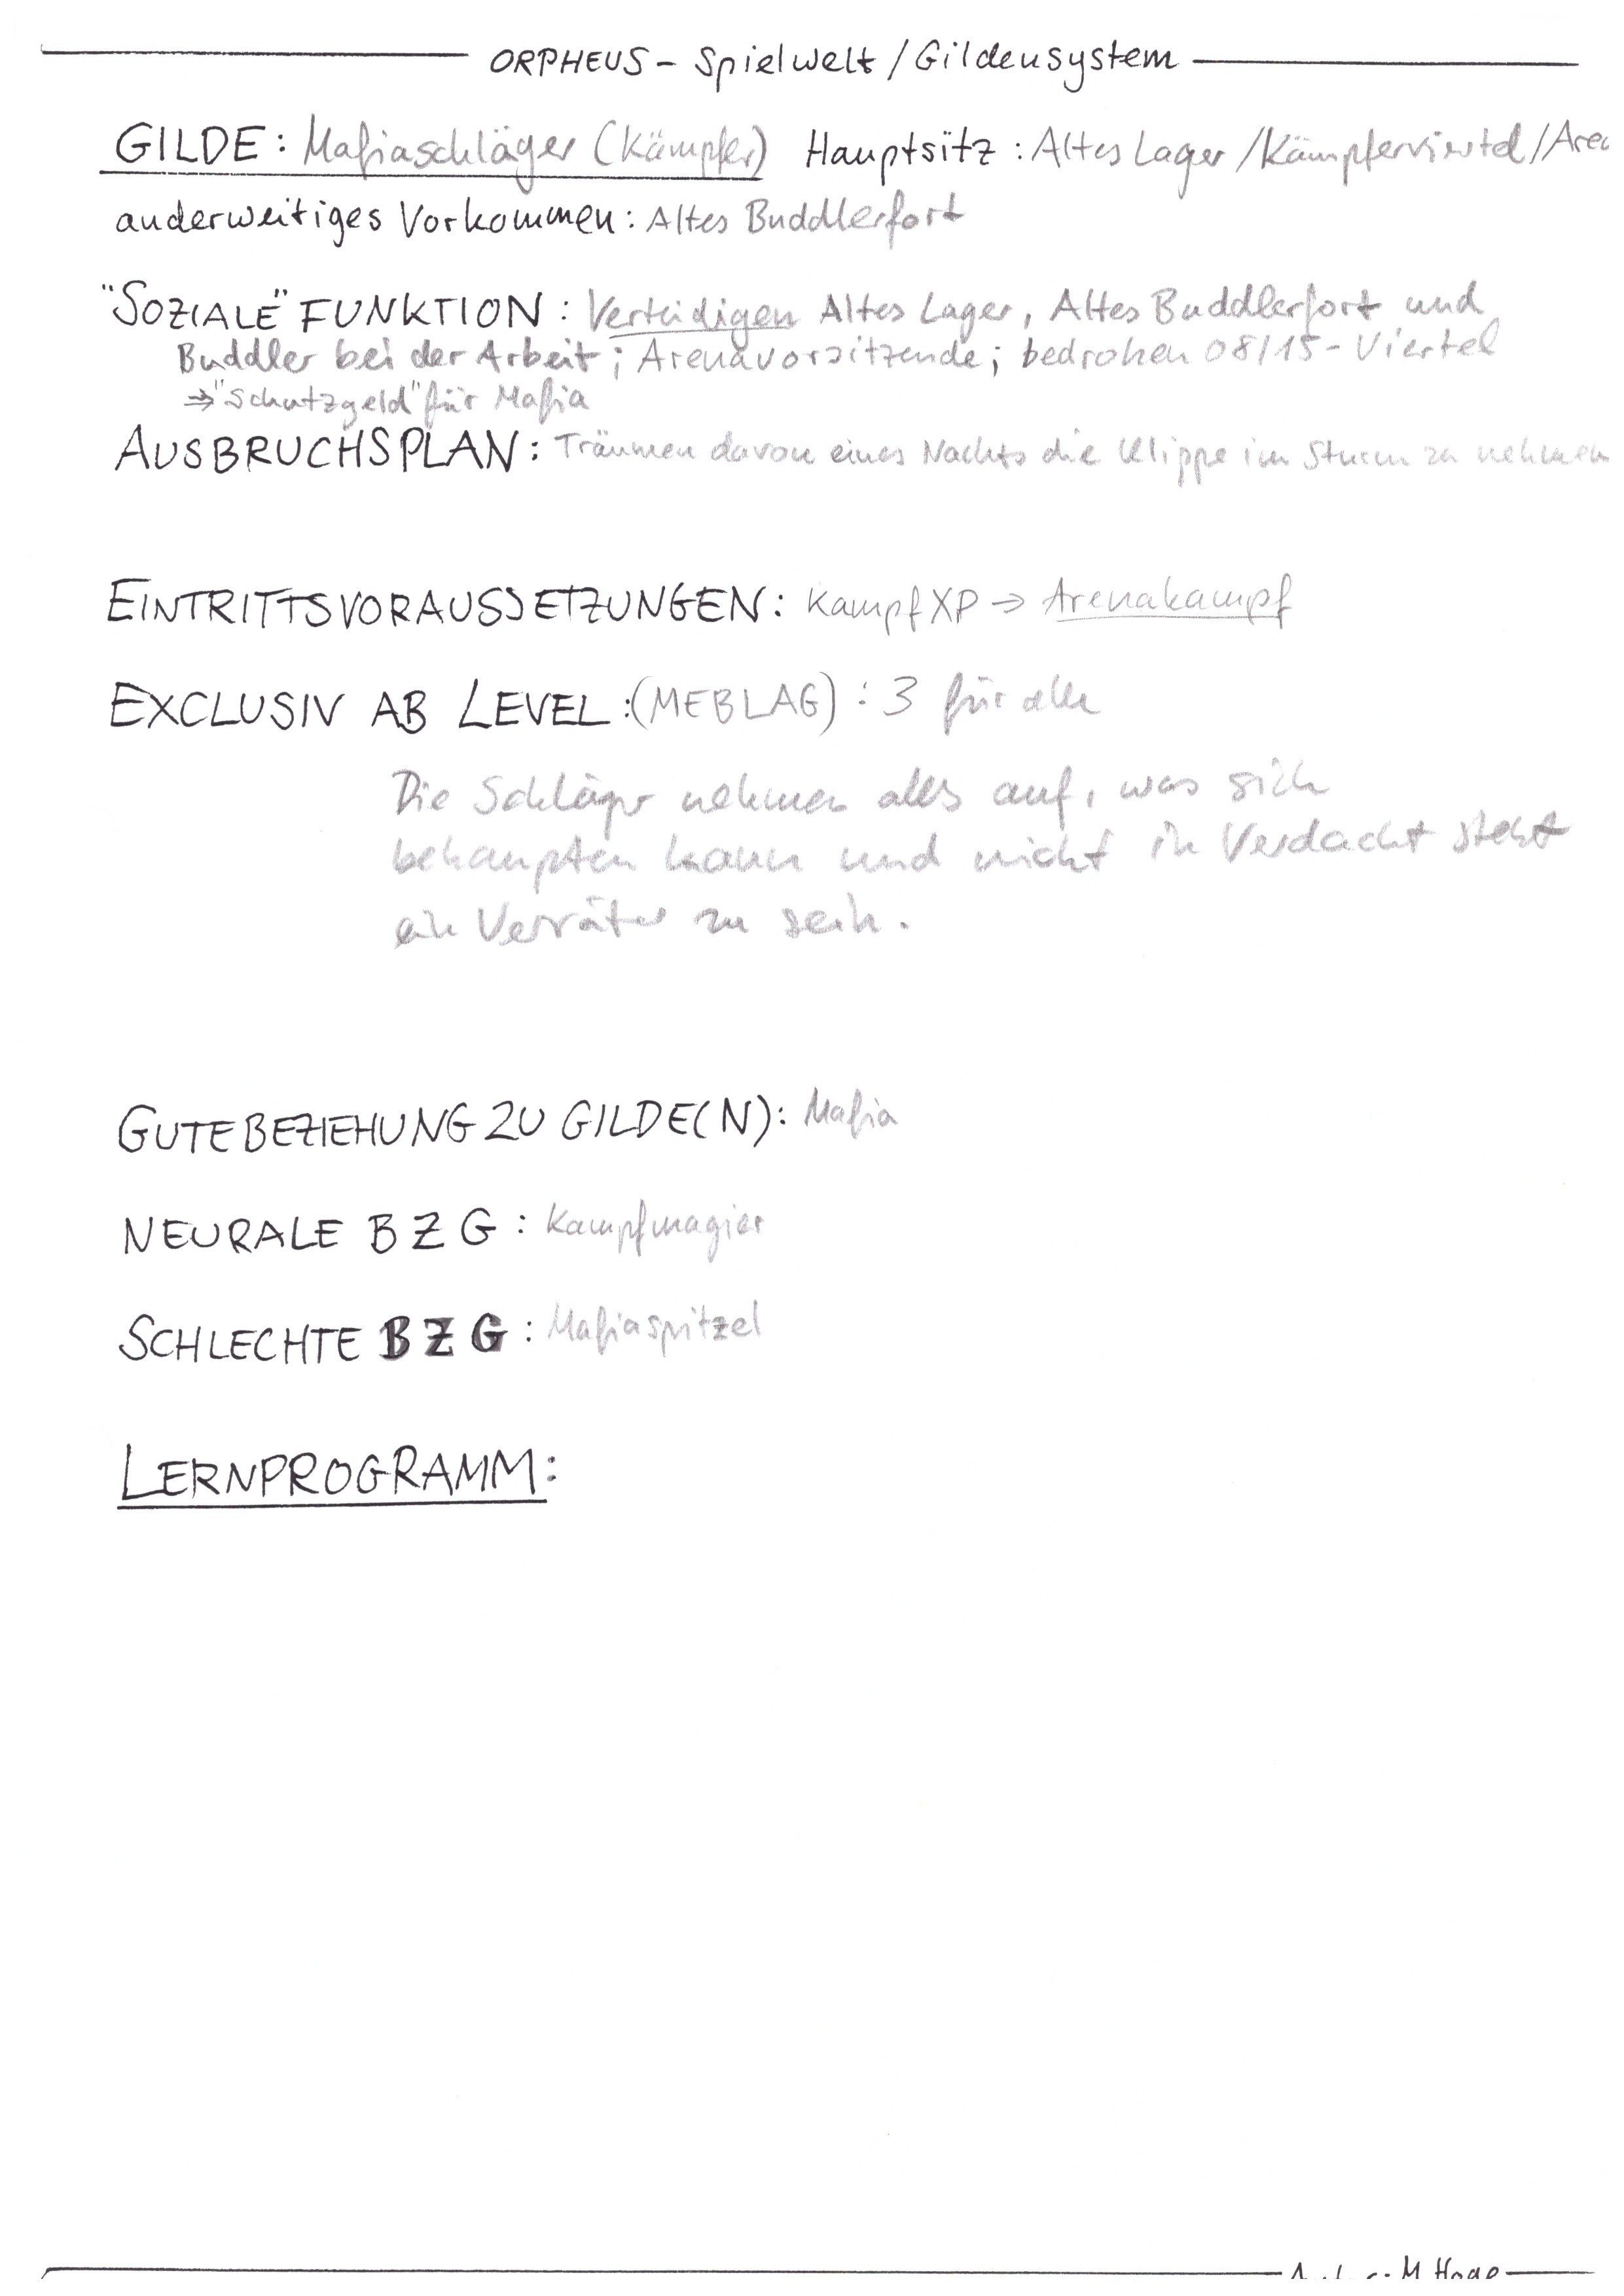 ORPHEUS - Spielwelt / Gildensystem
GILDE: Mafiaschläger (Kämpfer) Hauptsitz: Altes Lager / Kämpferviertel /
anderweitiges Vorkommen: Altes Buddlerfort
"SOZIALE" FUNKTION: Verteidigen Altes Lager, Altes Buddlerfort und
Buddler bei der Arbeit; Arenavorsitzende; bedrohen 08/15-Viertel
⇒ "Schutzgeld" für Mafia
AUSBRUCHSPLAN: Träumen davon eines Nachts die Klippe im Sturm zu nehmen
EINTRITTSVORAUSSETZUNGEN: Kampf XP ⇒ Arenakampf
EXCLUSIV AB LEVEL: (MEBLAG): 3 für alle
Die Schläger nehmen alles auf, was sich
behaupten kann und nicht in Verdacht steht
ein Verräter zu sein.
GUTE BEZIEHUNG ZU GILDE(N): Mafia
NEURALE B Z G: Kampfmagier
SCHLECHTE B Z G: Mafiaspitzel
LERNPROGRAMM: